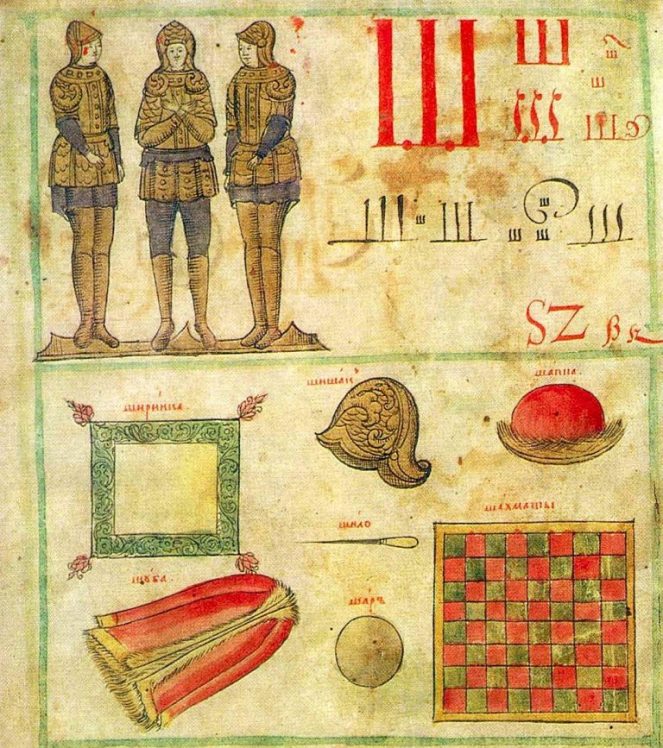 Ш Ш ш
ш
ш ш
ш ш ш ш ш ш
SZ
ширинка
шишакъ
шапка.
шило
шахматы
шуба.
шаръ